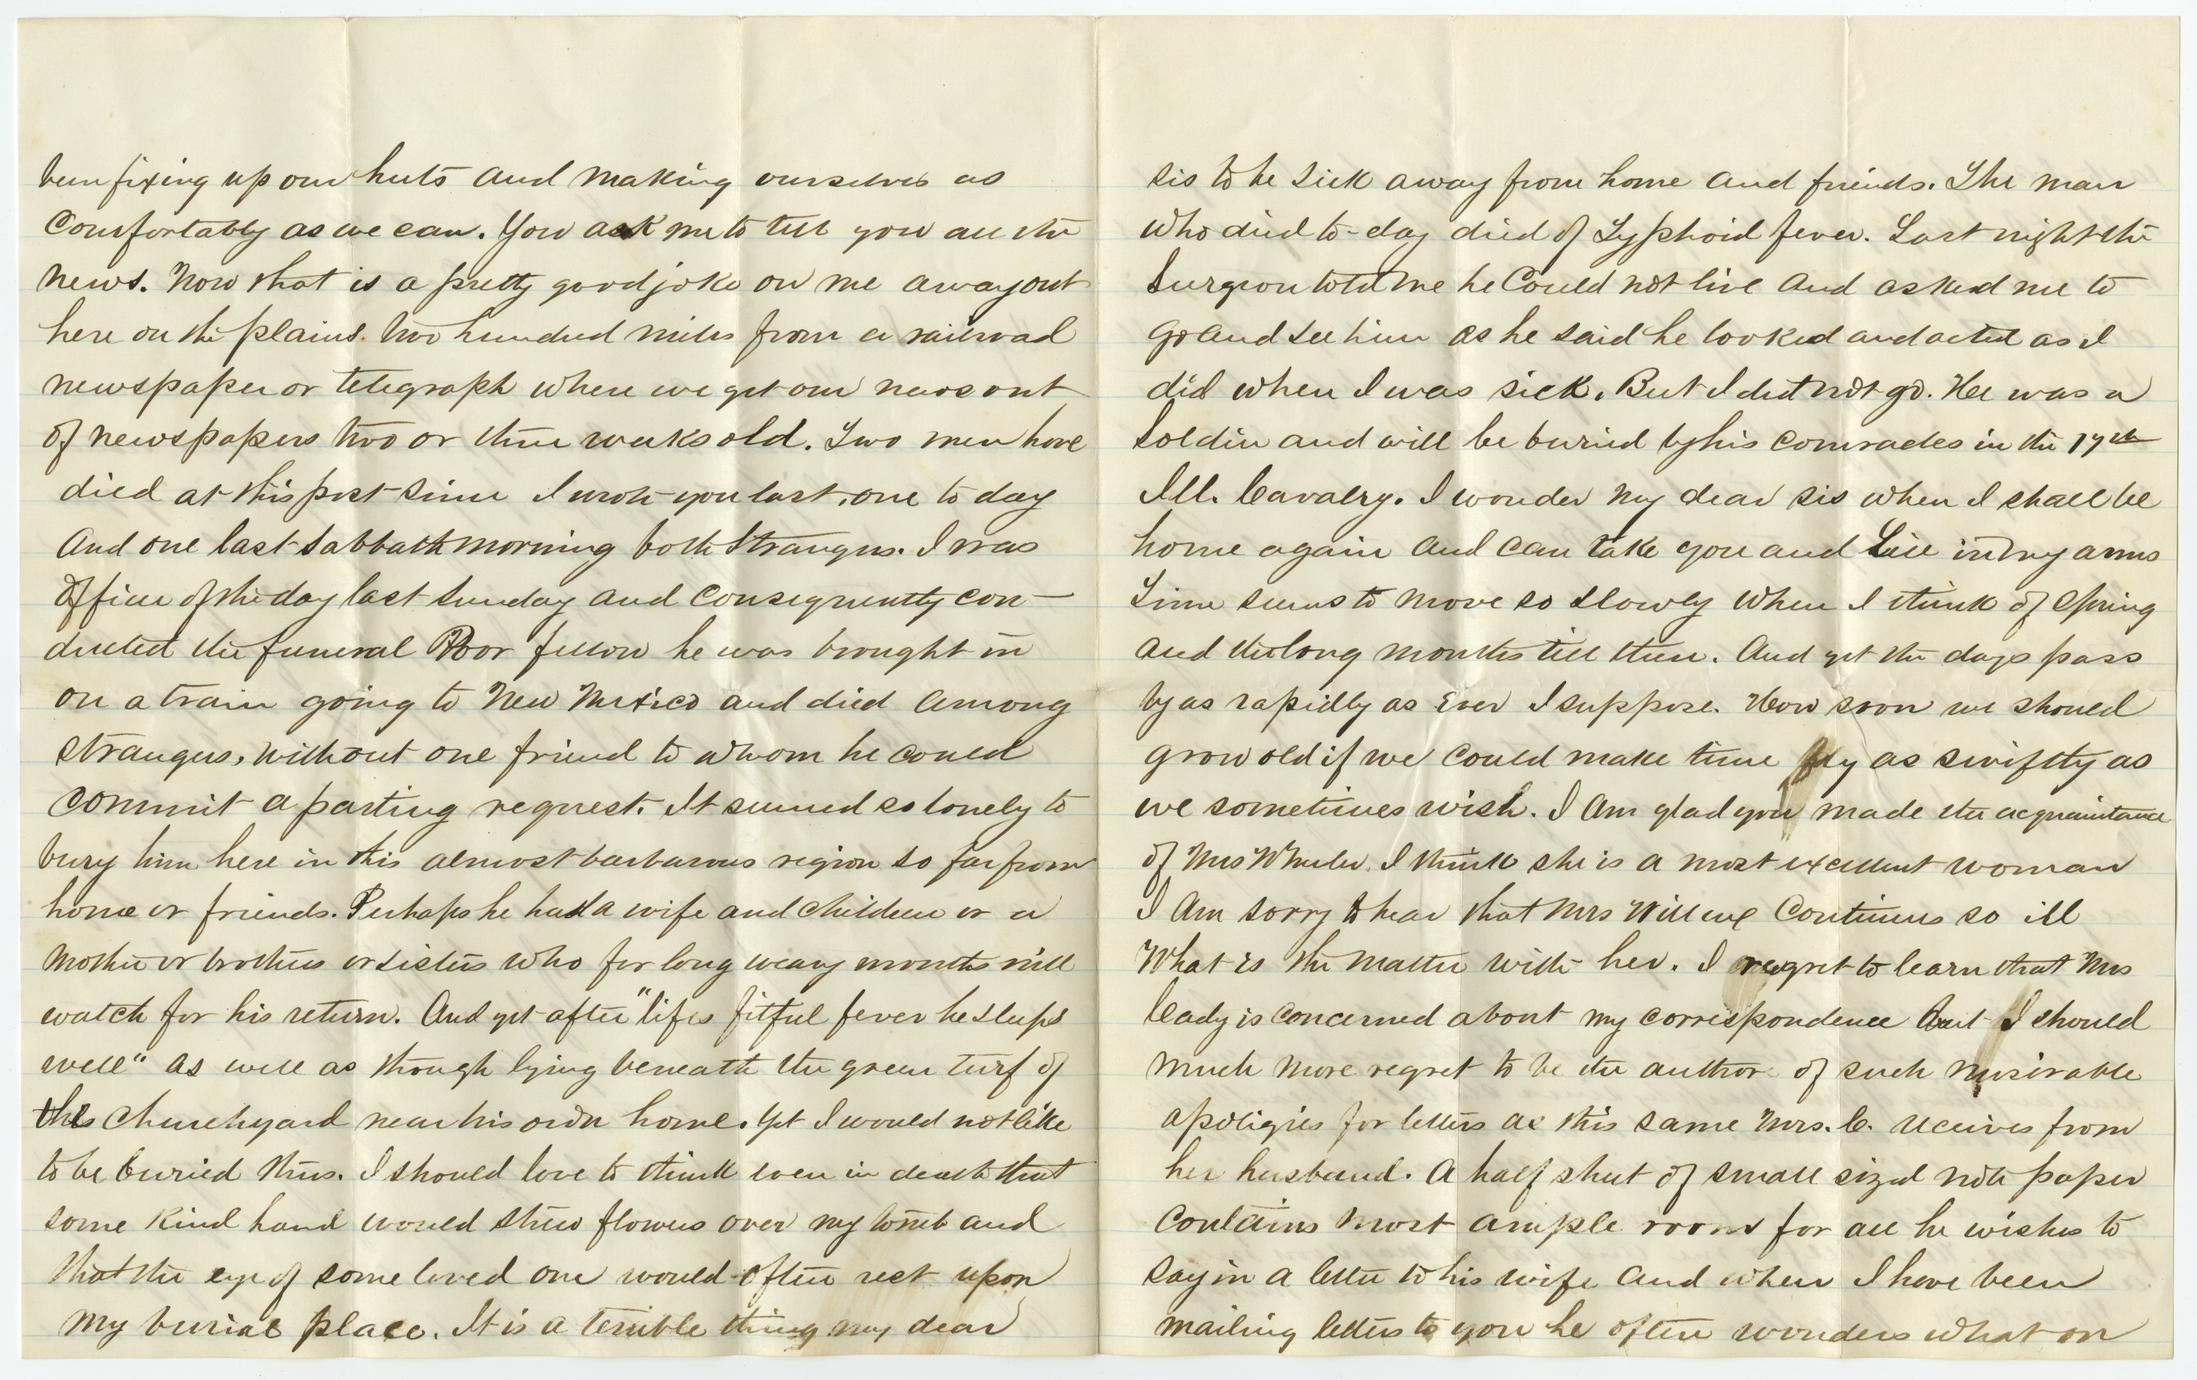 been fixing up our huts and making ourselves as
comfortably as we can. You ask me to tell you all the
news. Now that is a pretty good joke on me away out
here on the plains. two hundred miles from a railroad
newspaper or telegraph where we get our news out
of newspapers two or three weeks old. Two men have
died at this post since I wrote you last, one to day
And one last Sabbath morning both strangers. I was
officer of the day last Sunday and consequently con-
ducted the funeral Poor fellow he was brought in
on a train going to New Mexico and died among
strangers, without one friend to whom he could
commit a parting request. It seemed so lonely to
bury him here in this almost barbarous region so far from
home or friends. Perhaps he had a wife and children or a
mother or brothers or sisters who for long weary months will
watch for his return. And yet after "lifes fitful fever he sleeps
well" as well as though lying beneath the green turf of
the churchyard near his own home. Yet I would not like
to be buried thus. I should love to think even in death that
some kind hand would strew flowers over my tomb and
that the eye of some loved one would often rest upon
my burial place. It is a terrible thing my dear
sis to be sick away from home and friends. The man
who died to-day died of Typhoid fever. Last night the
Surgeon told me he could not live and asked me to
go and see him as he said he looked and acted as I
did when I was sick. But I did not go. He was a
soldier and will be buried by his comrades in the 17th
Ill. Cavalry. I wonder my dear sis when I shall be
home again and can take you and in my arms
Time seems to move so slowly when I think of Spring
and the long months till then. And yet the days pass
by as rapidly as ever I suppose. How soon we should
grow old if we could make time fly as swiftly as
we sometimes wish. I am glad you made the acquaintance
of Mrs Wheeler. I think she is a most excellent woman
I am sorry to hear that Mrs continues so ill
What is the matter with her. I regret to learn that Mrs
Cady is concerned about my correspondence but I should
much more regret to be the author of such miserable
apoligies for letters as this same Mrs. C. receives from
her husband. A half sheet of small sized note paper
contains most ample room for all he wishes to
say in a letter to his wife and when I have been
mailing letters to you he often wonders what on